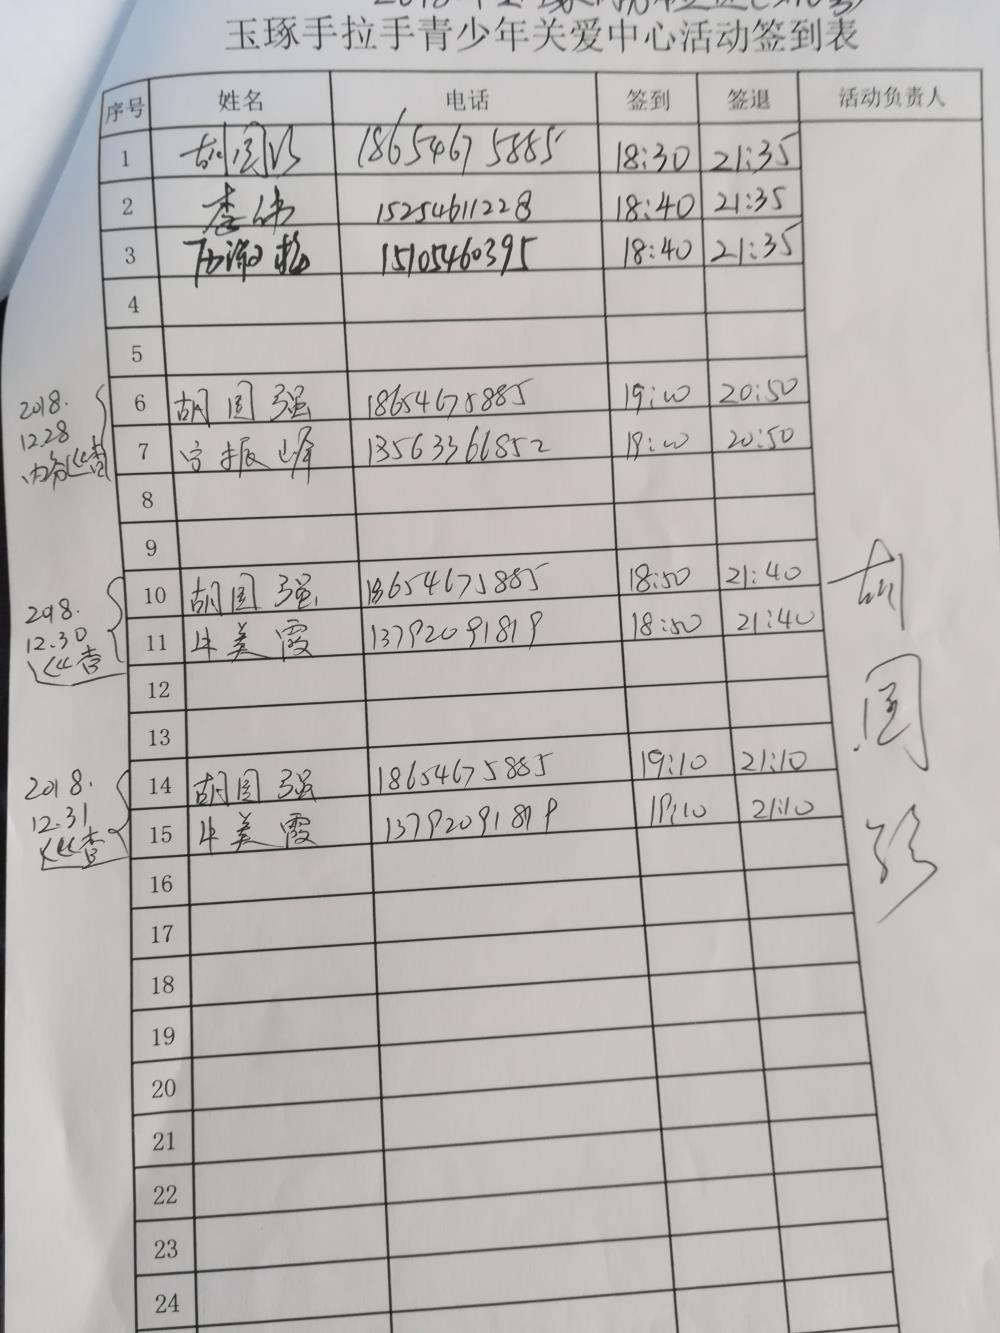 玉琢手拉手青少年关爱中心活动签到表
序号 姓名 电话 签到 签退 活动负责人
1 胡国强 18654675885 18:30 21:35
2 李伟 15254611228 18:40 21:35
3 15105460395 18:40 21:35
4
5
2018.
12.28
内务巡查
6 胡国强 18654675885 19:00 20:50
7 宗振峰 13563366852 19:00 20:50
8
9
2018.
12.30
巡查
10 胡国强 18654675885 18:50 21:40
11 牛美霞 13792091819 18:50 21:40
12
13
2018.
12.31
巡查
14 胡国强 18654675885 19:10 21:10
15 牛美霞 13792091819 19:10 21:10
胡国强
16
17
18
19
20
21
22
23
24